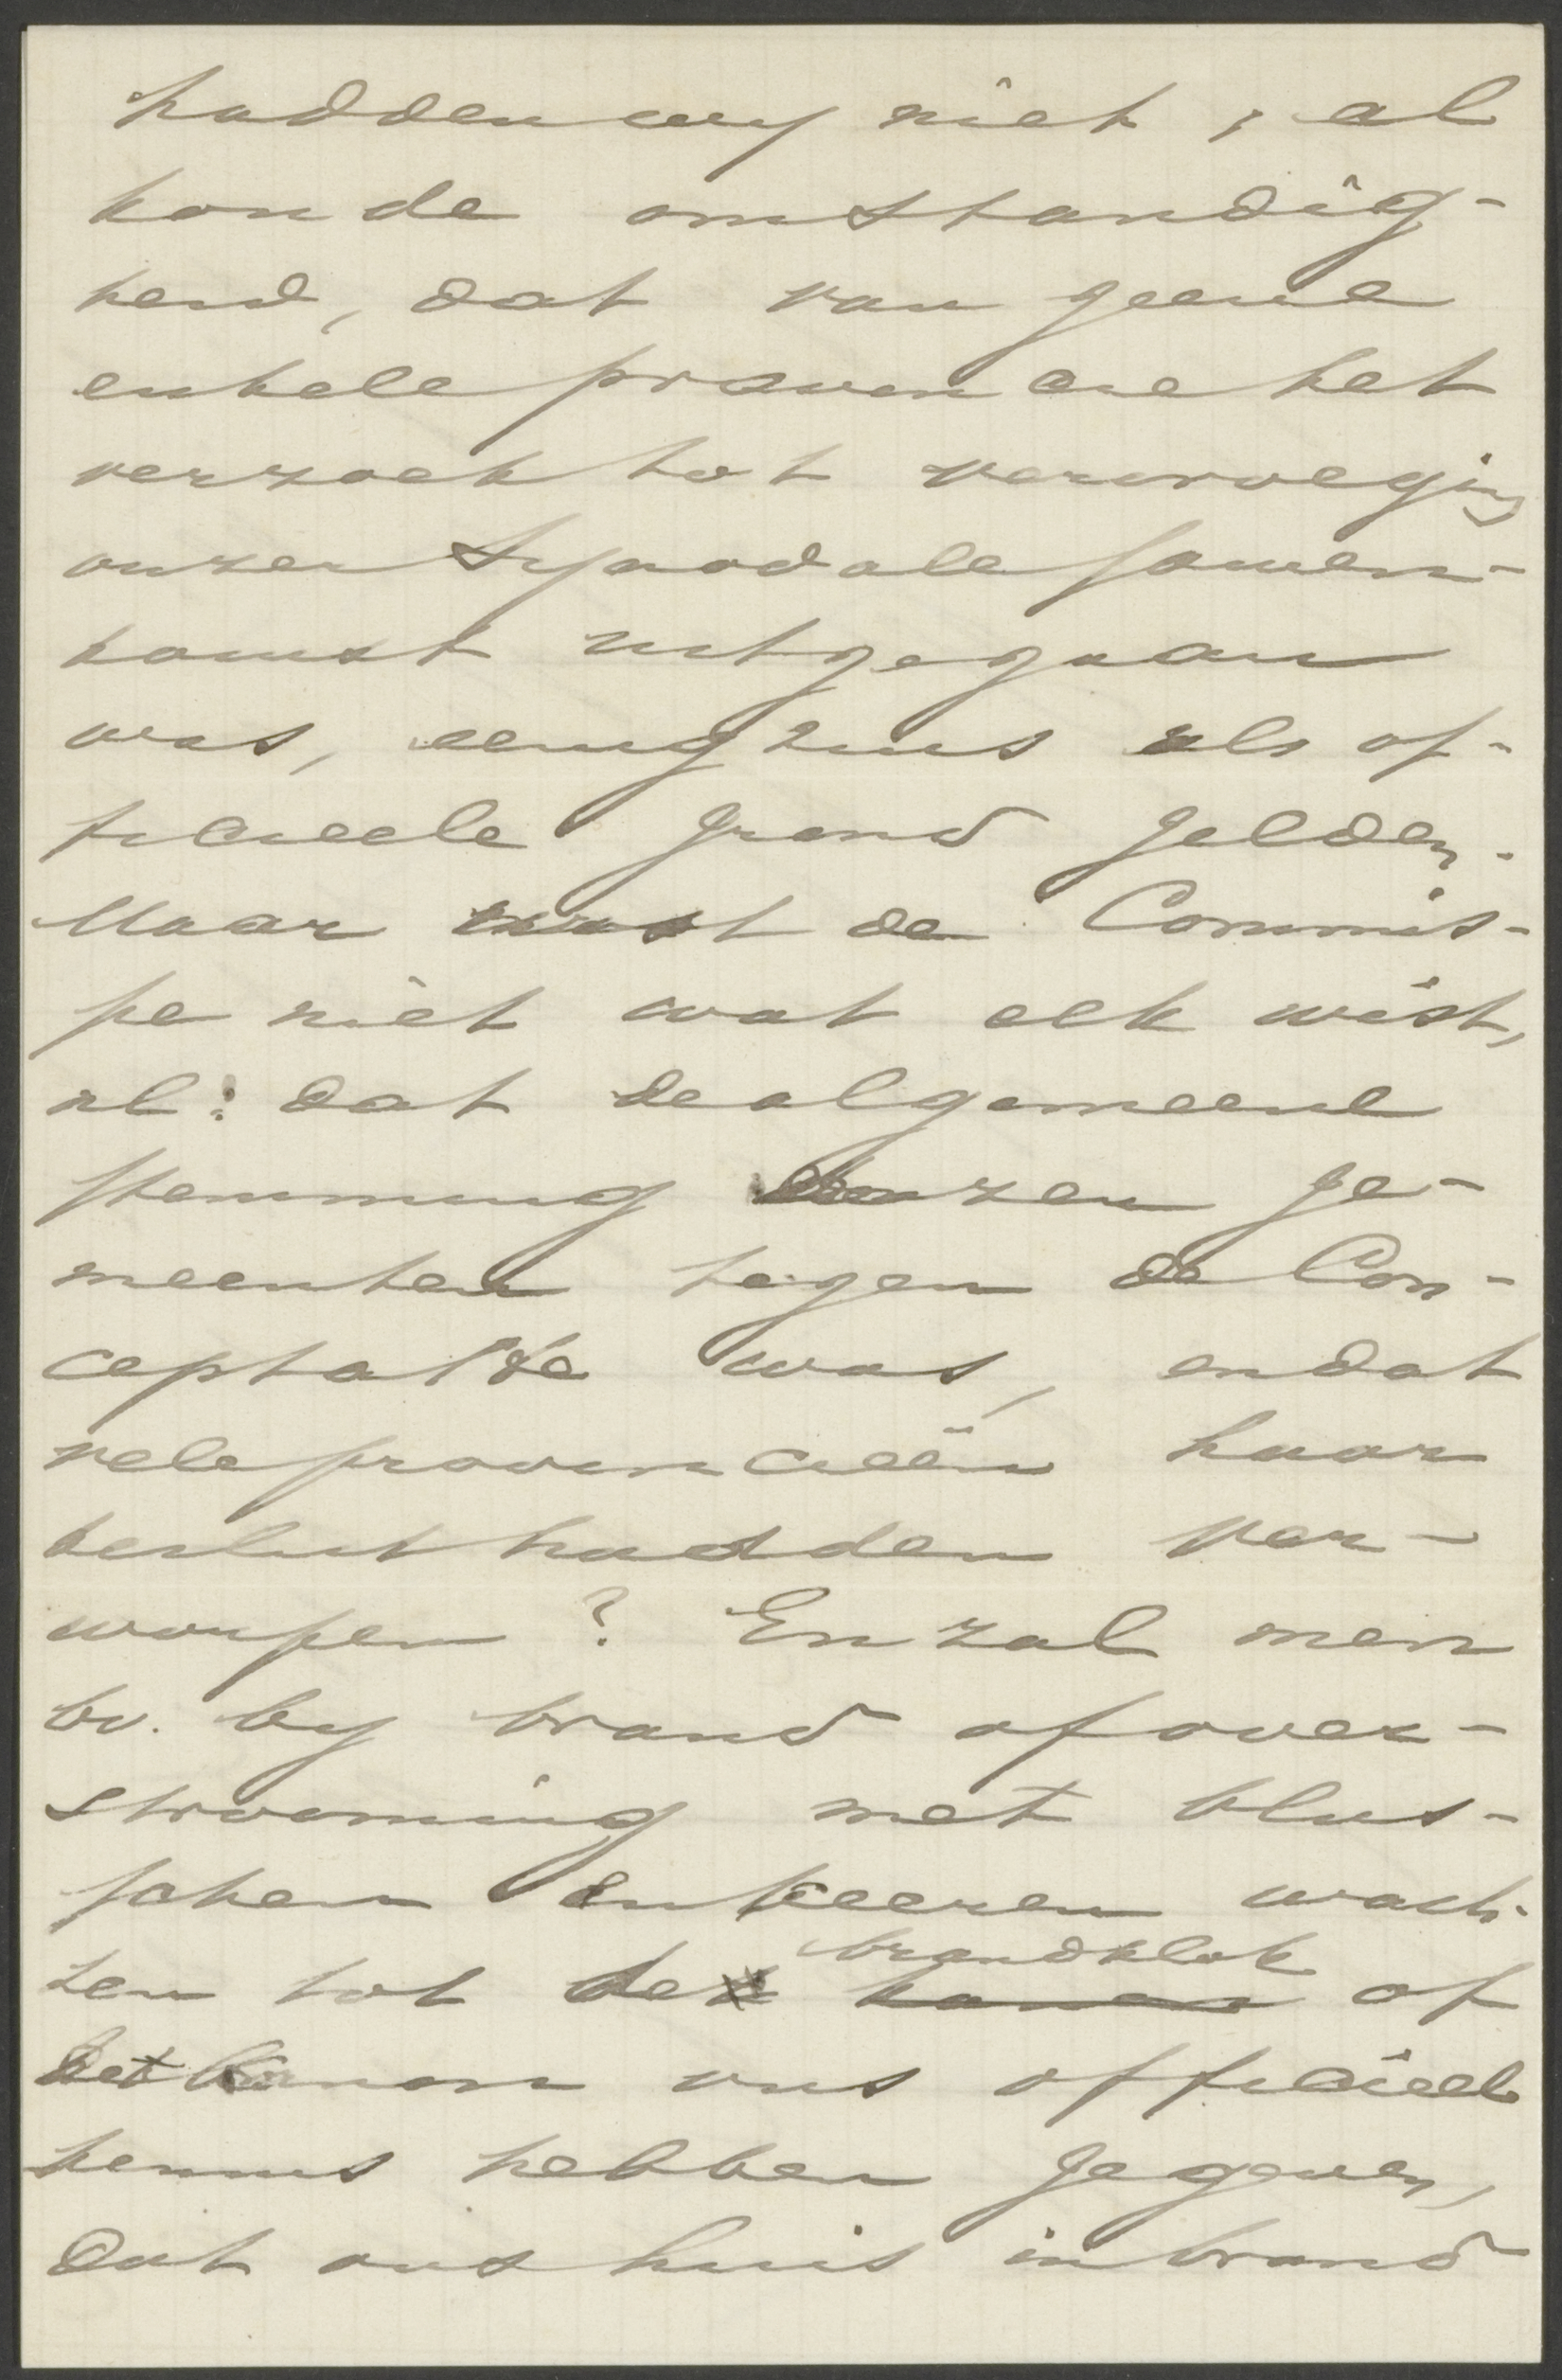 hadden wy niet, al
kon de omstandig-
heid, dat van geene
enkele provincie het
verzoek tot vervroeging
onzer Synodale samen-
komst uitgegaan
was, eenigzins als of-
ficieele grond gelden.
Maar wist de Commis-
sie niet wat elk wist,
nl: dat de algemeene
stemming onzer ge-
meenten tegen de Con-
ceptakte was, en dat
vele provincieën haar
besluit hadden ver-
worpen? En zal men
bv. by brand of over-
strooming met blus-
schen en keeren wach-
ten tot de brandklok of
het kanon ons officieel
kennis hebben gegeven,
dat ons huis in brand